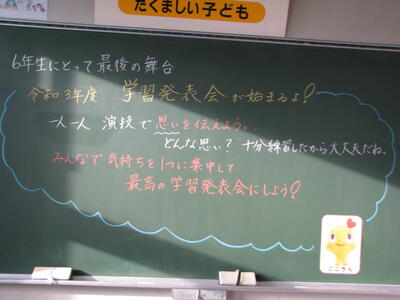 たくましい子ども
6年生にとって最後の舞台
令和3年度 学習発表会が始まるよ!
一人一人 演技で思いを伝えよう。
どんな思い? 十分練習したから大丈夫だね。
みんなで気持ちを1つに集中して
最高の学習発表会にしよう!